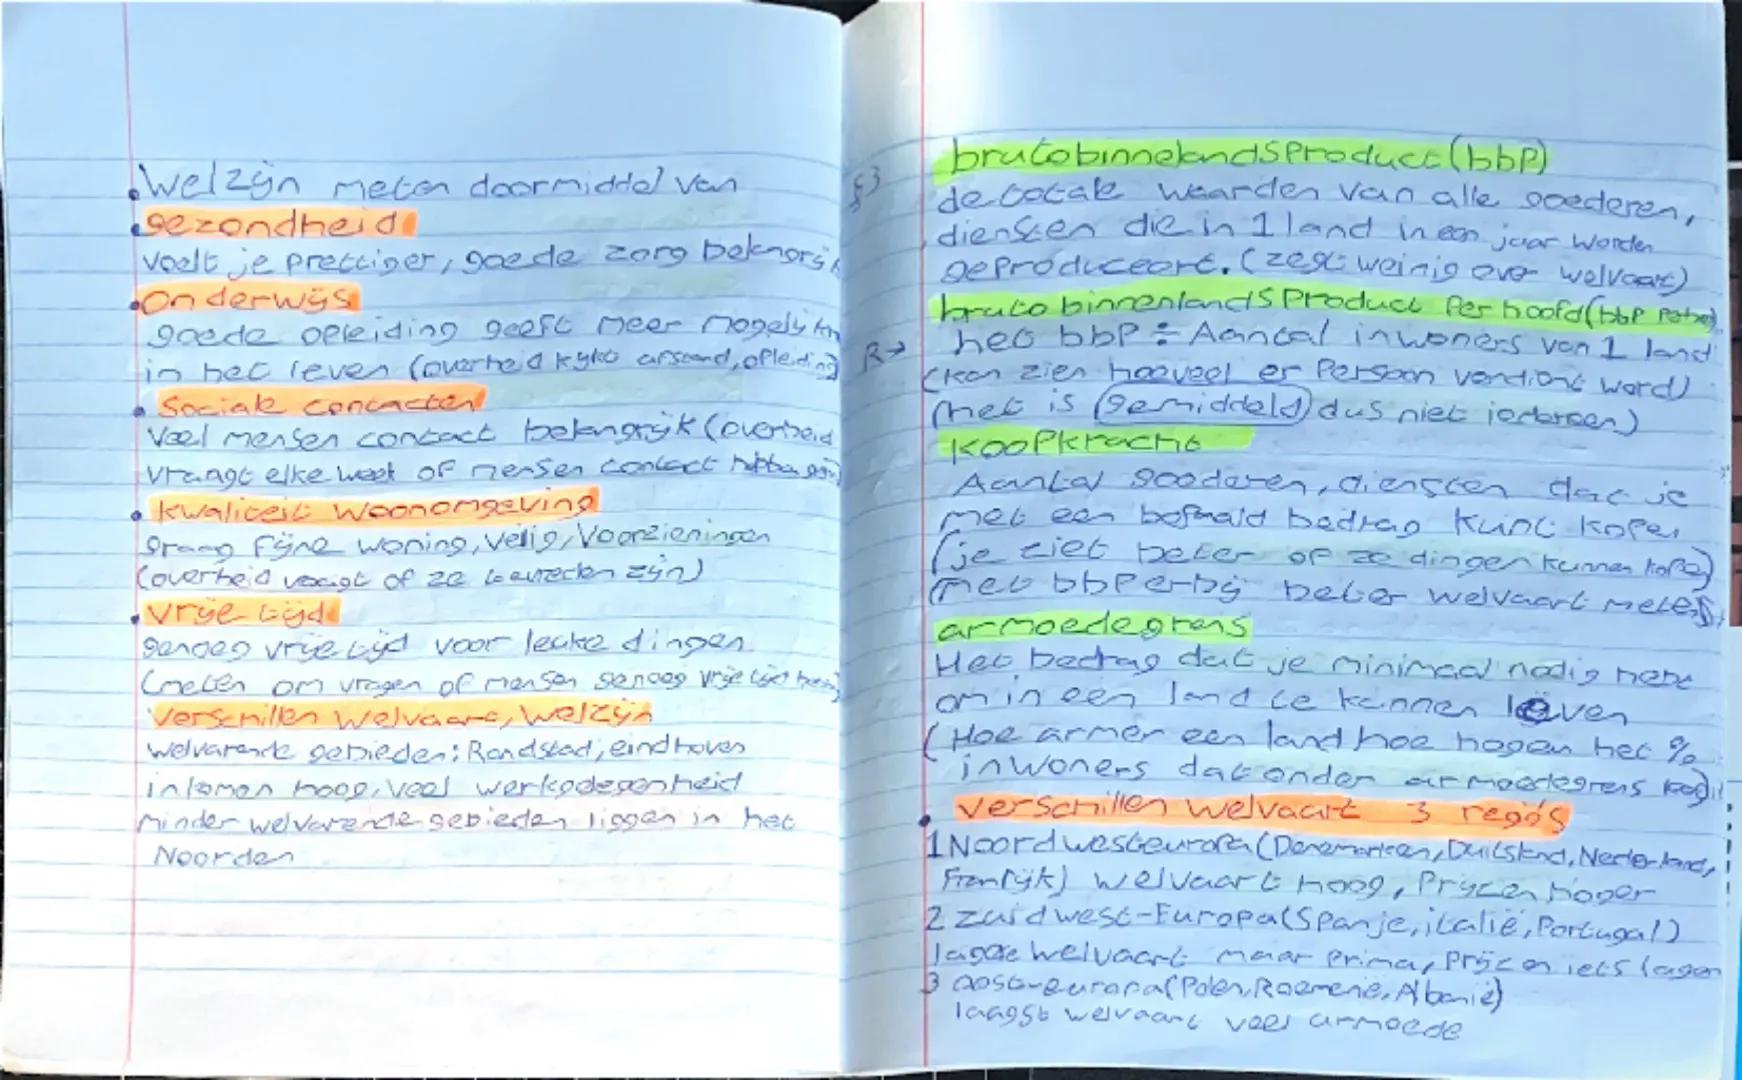 Welzijn meten doormiddel van
gezondheid
voelt je prettiger, goede zorg belangrijk
onderwijs
goede opleiding geeft meer mogelijkh
in het leven (overheid kijkt afstand, opleiding)
Sociale contacten
Veel mensen contact belangrijk (overheid
vraagt elke week of mensen contact hebben
kwaliteit woonomgeving
graag fijne woning, veilig, voorzieningen
(overheid vraagt of ze tevreden zijn)
vrije tijd
genoeg vrije tijd voor leuke dingen
(meten om vragen of mensen genoeg vrije tijd
Verschillen welvaart, welzijn
welvarende gebieden: Randstad, eindhoven
inkomen hoog, veel werkgelegenheid
minder welvarende gebieden liggen in het
Noorden
§3
brutobinnelandsproduct (bbp)
de totale waarden van alle goederen,
diensten die in 1 land in een jaar worden
geproduceert. (zegt weinig over welvaart)
bruto binnenlands Product Per hoofd (bbp
R→ het bbp ÷ Aantal inwoners van 1 land
(kan zien hoeveel er Persoon verdient word)
(het is gemiddeld dus niet iedereen)
koopkracht
Aantal goederen, diensten dat je
met een bepaald bedrag kunt kopen
(je ziet beter of ze dingen kunnen kopen)
met bbp erbij beter welvaart meten
armoedegrens
Het bedrag dat je minimaal nodig hebt
om in een land te kunnen leven
(Hoe armer een land hoe hogen het %
inwoners dat onder armoedegrens
Verschillen welvaart 3 regio's
1 Noordwesteuropa (Denemarken, Duitsland, Nederland,
Frankrijk) welvaart hoog, Prijzen hoger
2 zuidwest-Europa (Spanje, italië, Portugal)
lagere welvaart maar prima, Prijzen iets lager
3 oost-europa (Polen, Roemenë, Albanië)
laagst welvaart veel armoede